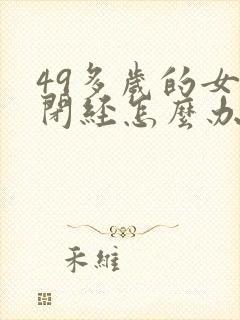 49多歲的女
閉經怎麼办
禾維